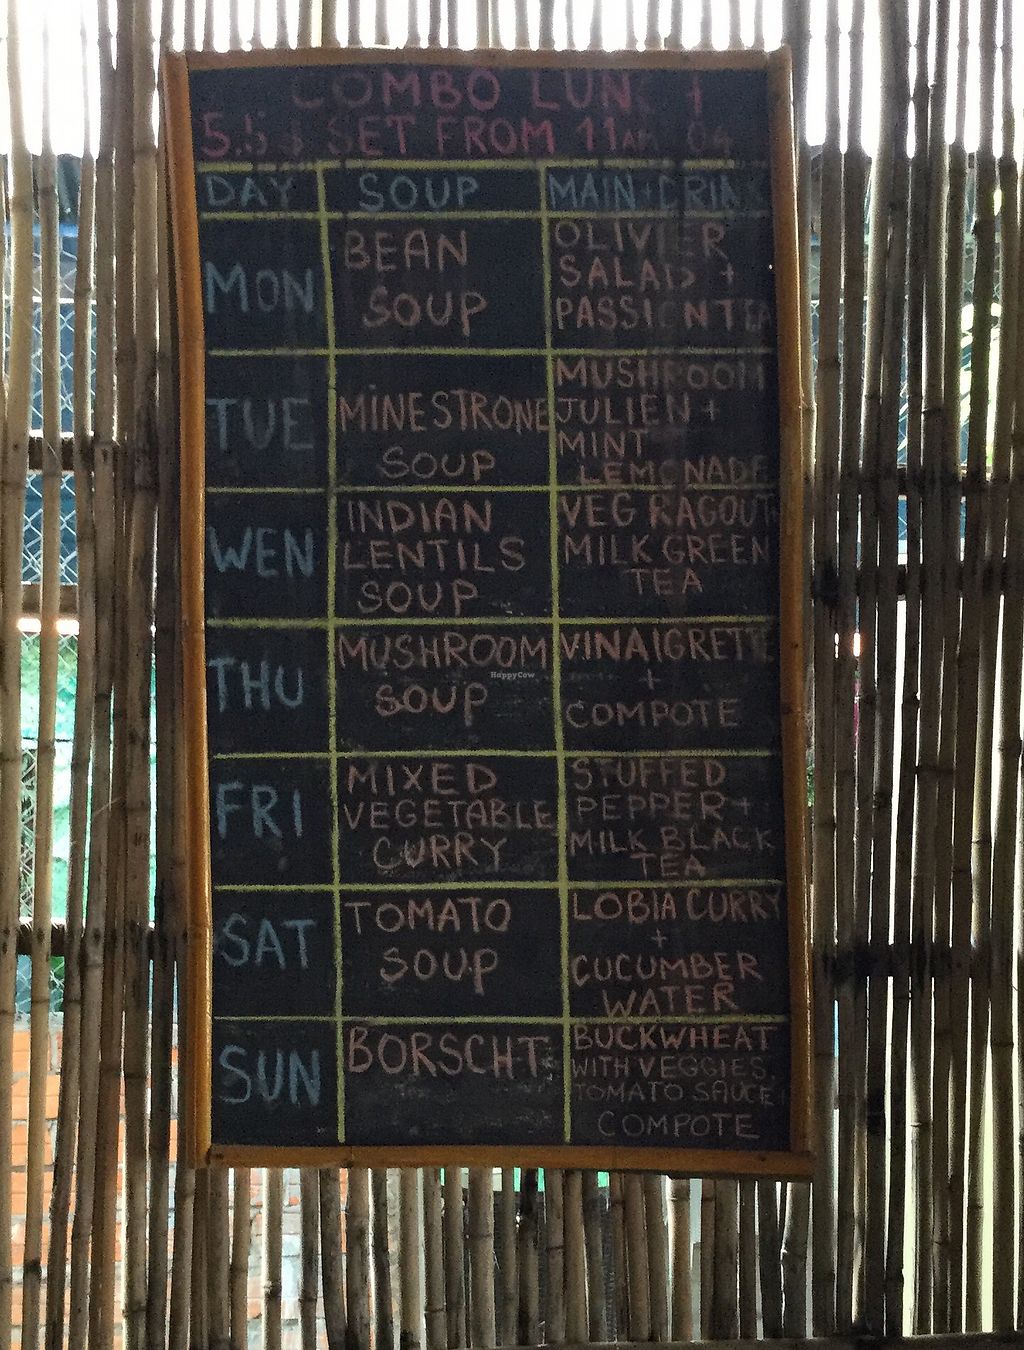 COMBO LUNCH
5.5$ SET FROM 11AM
DAY SOUP MAIN+DRINKS
MON
BEAN
SOUP
OLIVIER
SALAD +
PASSION TEA
TUE
MINESTRONE
SOUP
MUSHROOM
JULIEN +
MINT
LEMONADE
WEN
INDIAN
LENTILS
SOUP
VEG RAGOUT
MILK GREEN
TEA
THU
MUSHROOM
SOUP
VINAIGRETTE
+
COMPOTE
FRI
MIXED
VEGETABLE
CURRY
STUFFED
PEPPER +
MILK BLACK
TEA
SAT
TOMATO
SOUP
LOBIA CURRY
+
CUCUMBER
WATER
SUN
BORSCHT
BUCKWHEAT
WITH VEGGIES,
TOMATO SAUCE
COMPOTE
HappyCow